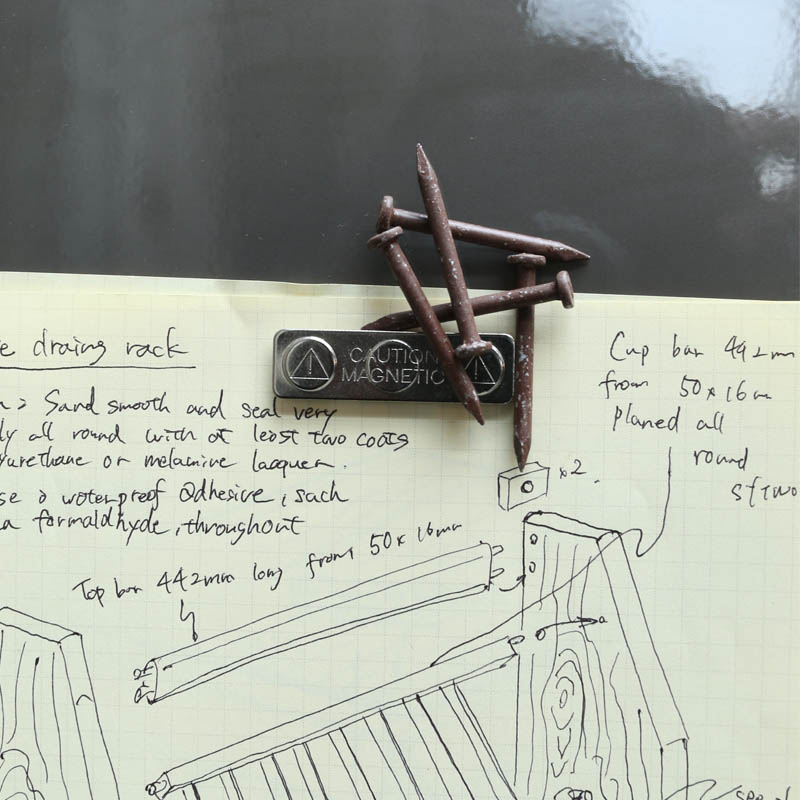 e draing rack
CAUTION
MAGNETIC
Sand smooth and seal very
ly all round with at least two coats
yurethane or melamine lacquer.
se a waterproof adhesive, such
a formaldhyde, throughout
Cup bar 442mm
from 50x16m
planed all
round
x2.
Top bar 442mm long from 50x16mm